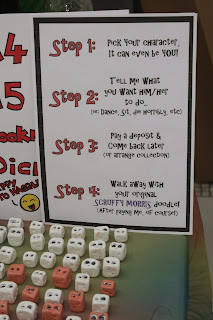 A4
A5
Die!
TO HAGGLE!
Step 1: Pick your character,
it can even be YOU!
Step 2: Tell me what
you want him/her
to do...
(ie: Dance, Sit, die horribly, etc)
Step 3: Pay a deposit &
Come back later
(or arrange collection)
Step 4: Walk away with
your original
SCRUFFY MORRIS doodle!
(After paying me, of course!)